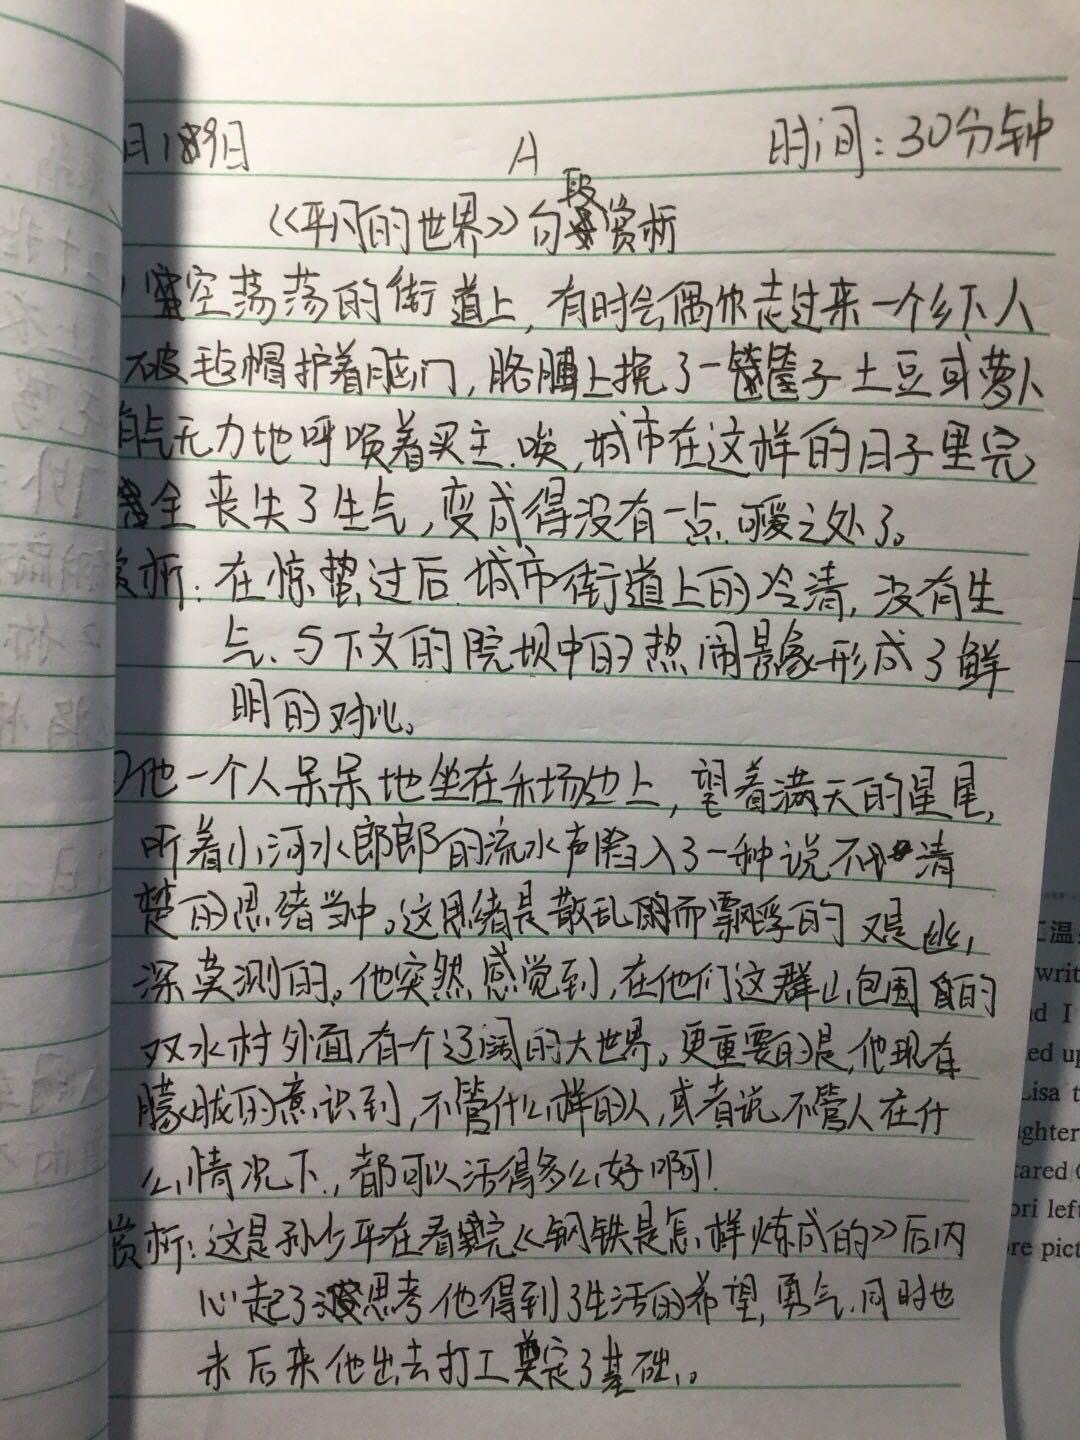 月19日 A 时间:30分钟
《平凡的世界》句段赏析
空荡荡的街道上,有时会偶你走过来一个乡下人
破毡帽护着脑门,胳膊上挽了一筐子土豆或萝卜
有气无力地呼唤着买主.唉,城市在这样的日子里完
全丧失了生气,变成得没有一点可爱之处了。
赏析:在惊蛰过后城市街道上的冷清,没有生
气、与下文的院坝中的热闹景象形成了鲜
明的对比。
他一个人呆呆地坐在禾场边上,望着满天的星星,
听着小河水郎郎的流水声陷入了一种说不清
楚的思绪当中。这思绪是散乱而飘浮的又是幽
深莫测的。他突然感觉到,在他们这群山包围的
双水村外面,有一个辽阔的大世界。更重要的是,他现在
朦胧的意识到,不管什么样的人,或者说不管人在什
么情况下,都可以活得多么好啊!
赏析:这是孙少平在看完《钢铁是怎样炼成的》后内
心起了思考他得到了生活的希望,勇气.同时也
未后来他出去打工奠定了基础。
工温
writ
d I
ed up
Lisa t
ghter
tared
ori left
re pict